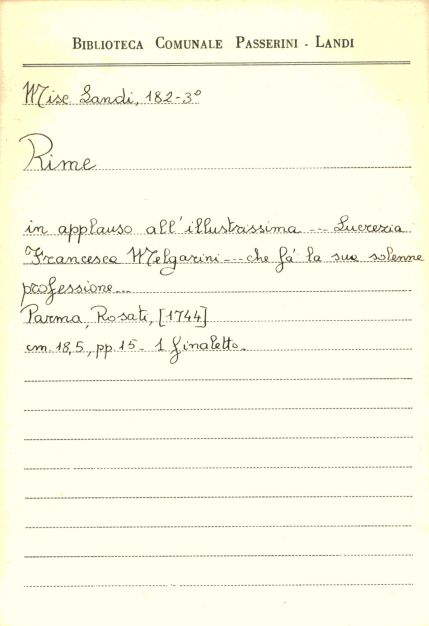 BIBLIOTECA COMUNALE PASSERINI - LANDI
Misc Landi, 182-3°
Rime
in applauso all'illustrissima --- Lucrezia
Francesca Melgarini --- che fá la sua solenne
professione...
Parma, Rosati, [1744]
cm. 18,5, pp. 15 - 1 finaletto.